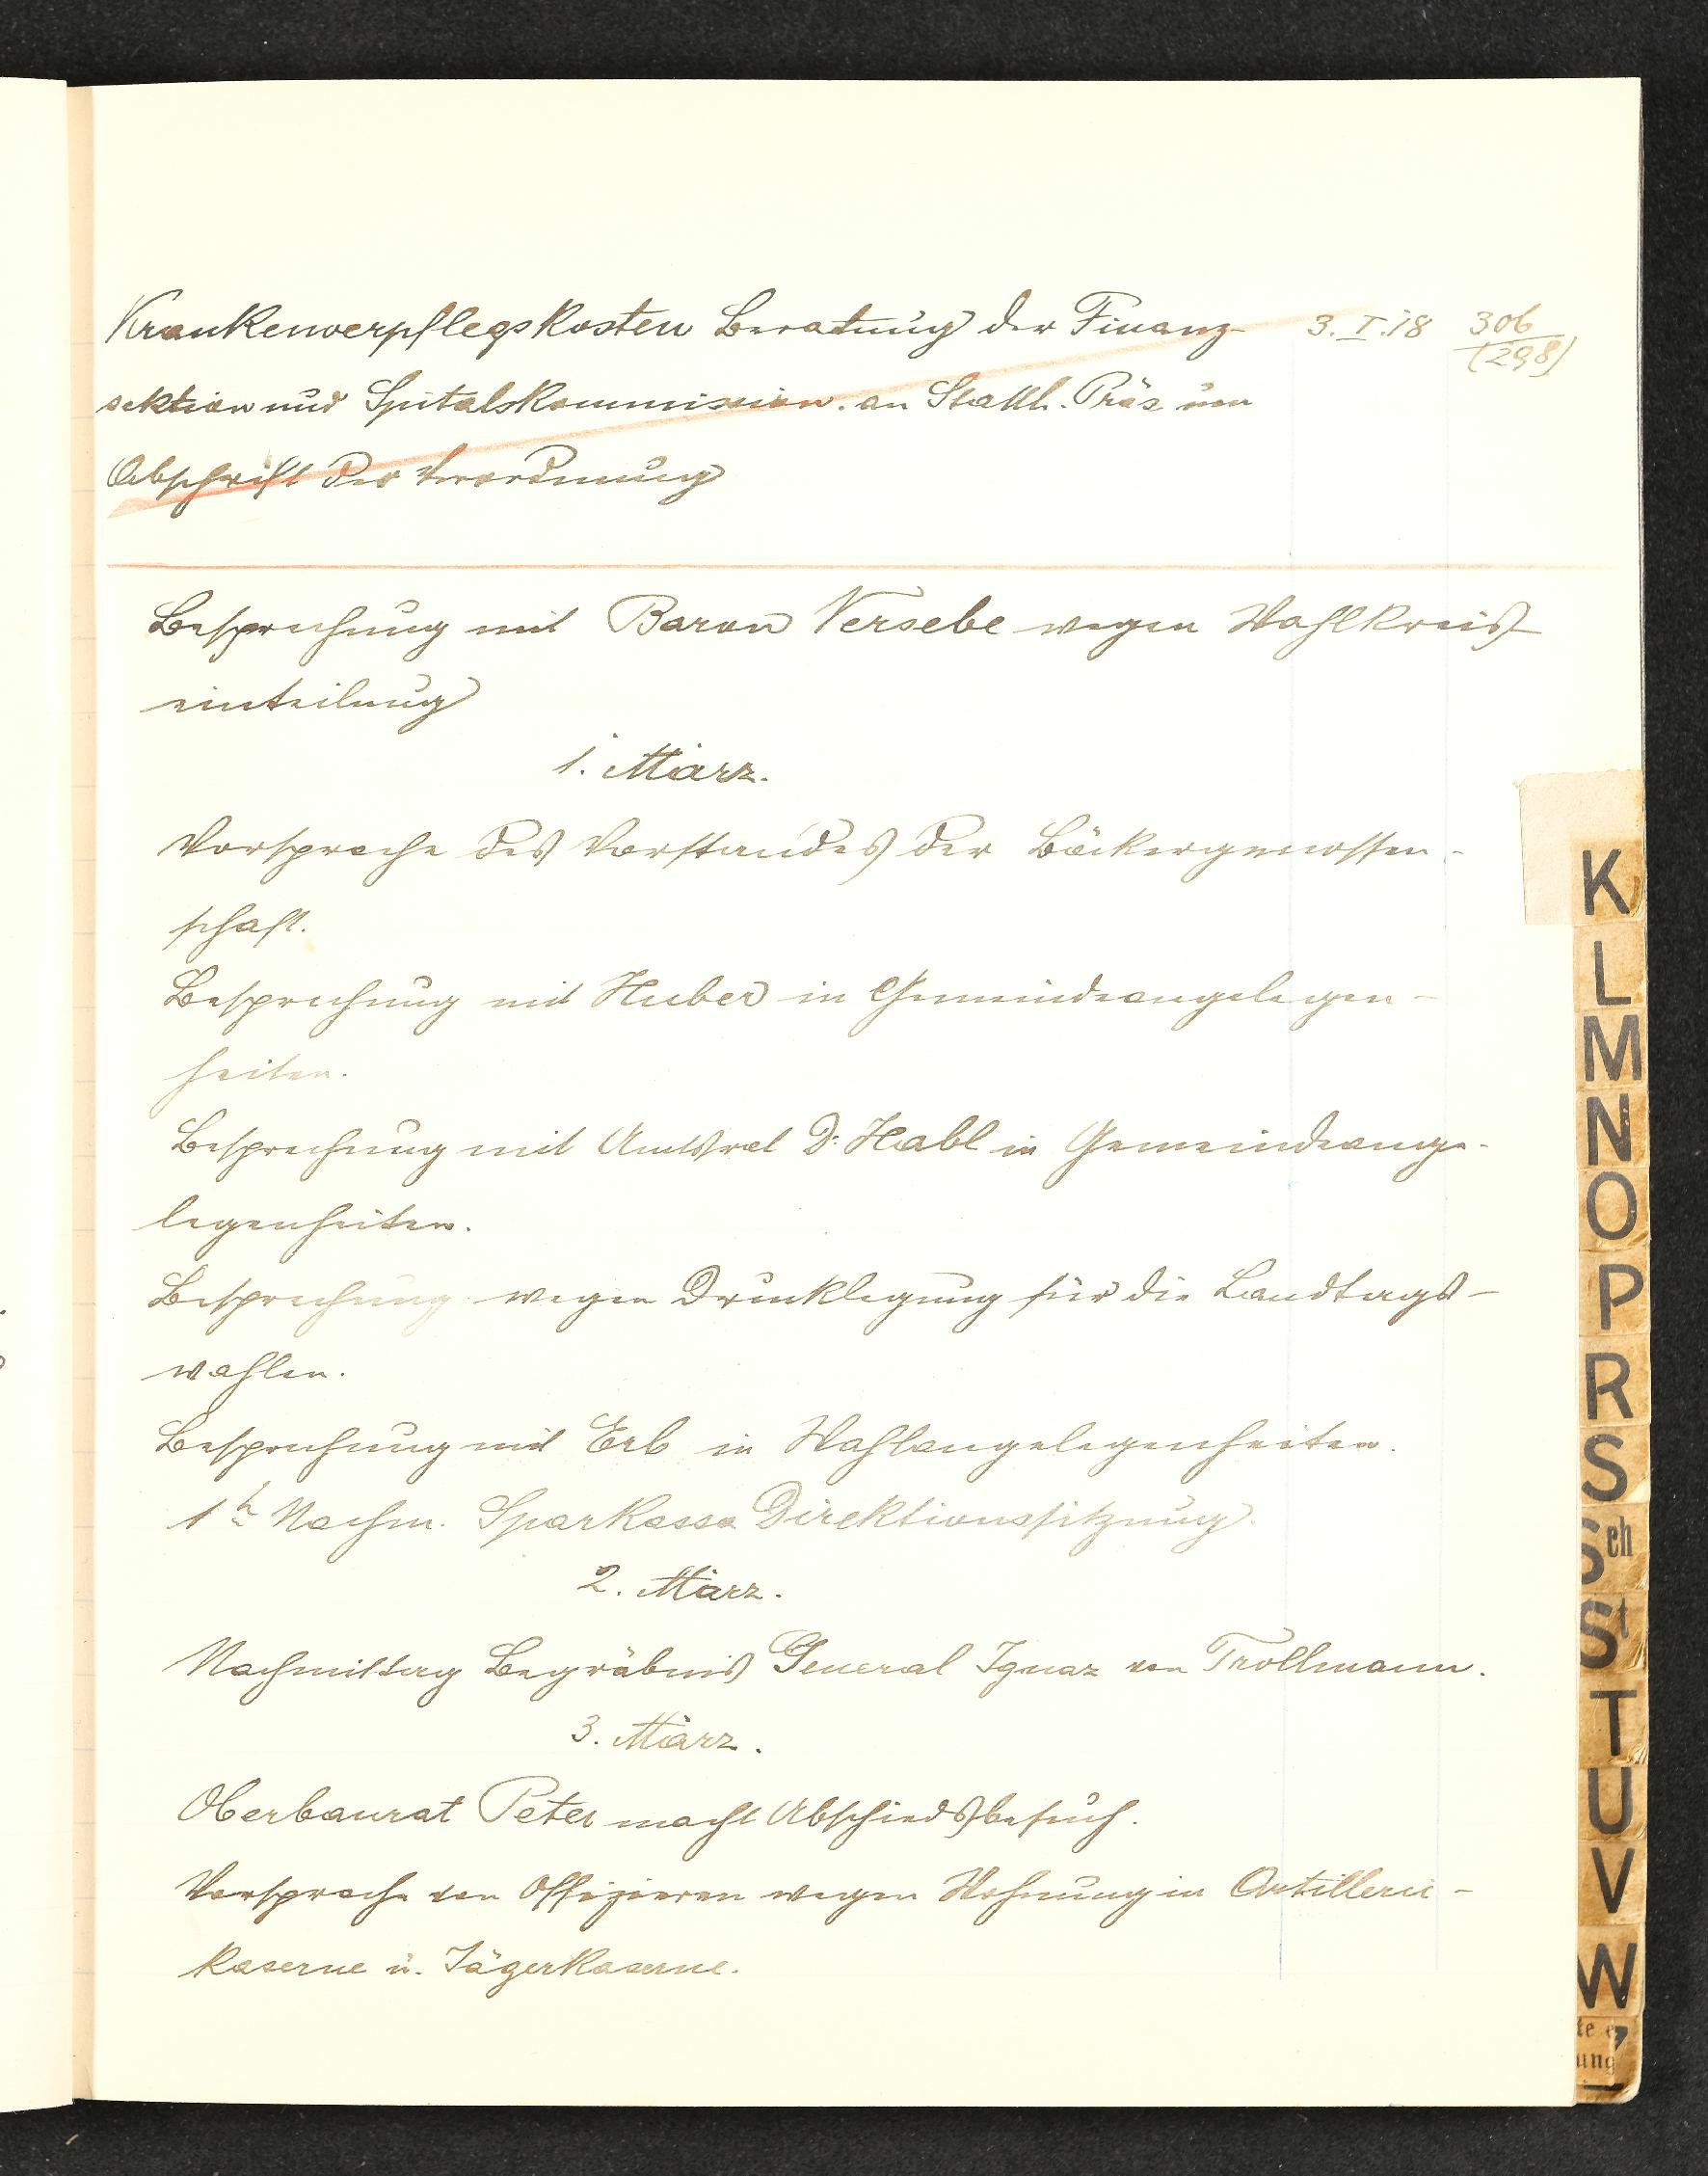 Krankenverpflegskosten Beratung der Finanz- 3. I. 18 306
(298)
sektion und Spitalskommission. an Statth. Präs um
Abschrift der Verordnung
Besprechung mit Baron Versebe wegen Wahlkreis-
einteilung
1. März.
Vorsprache des Vorstandes der Bäckergenossen-
schaft.
Besprechung mit Hueber in Gemeindeangelegen-
heiten.
Besprechung mit Amtsrat Dr Habl in Gemeindeange-
legenheiten.
Besprechung wegen Drucklegung für die Landtags-
wahlen.
Besprechung mit Erb in Wahlangelegenheiten.
1 h Nachm. Sparkassa Direktionssitzung.
2. März.
Nachmittag Begräbnis General Ignaz von Trollmann.
3. März.
Oberbaurat Peter macht Abschiedsbesuch.
Vorsprache von Offizieren wegen Wohnung in Artillerie-
kaserne u. Jägerkaserne.
K
L
M
N
O
P
R
S
Sch
St
T
U
V
W